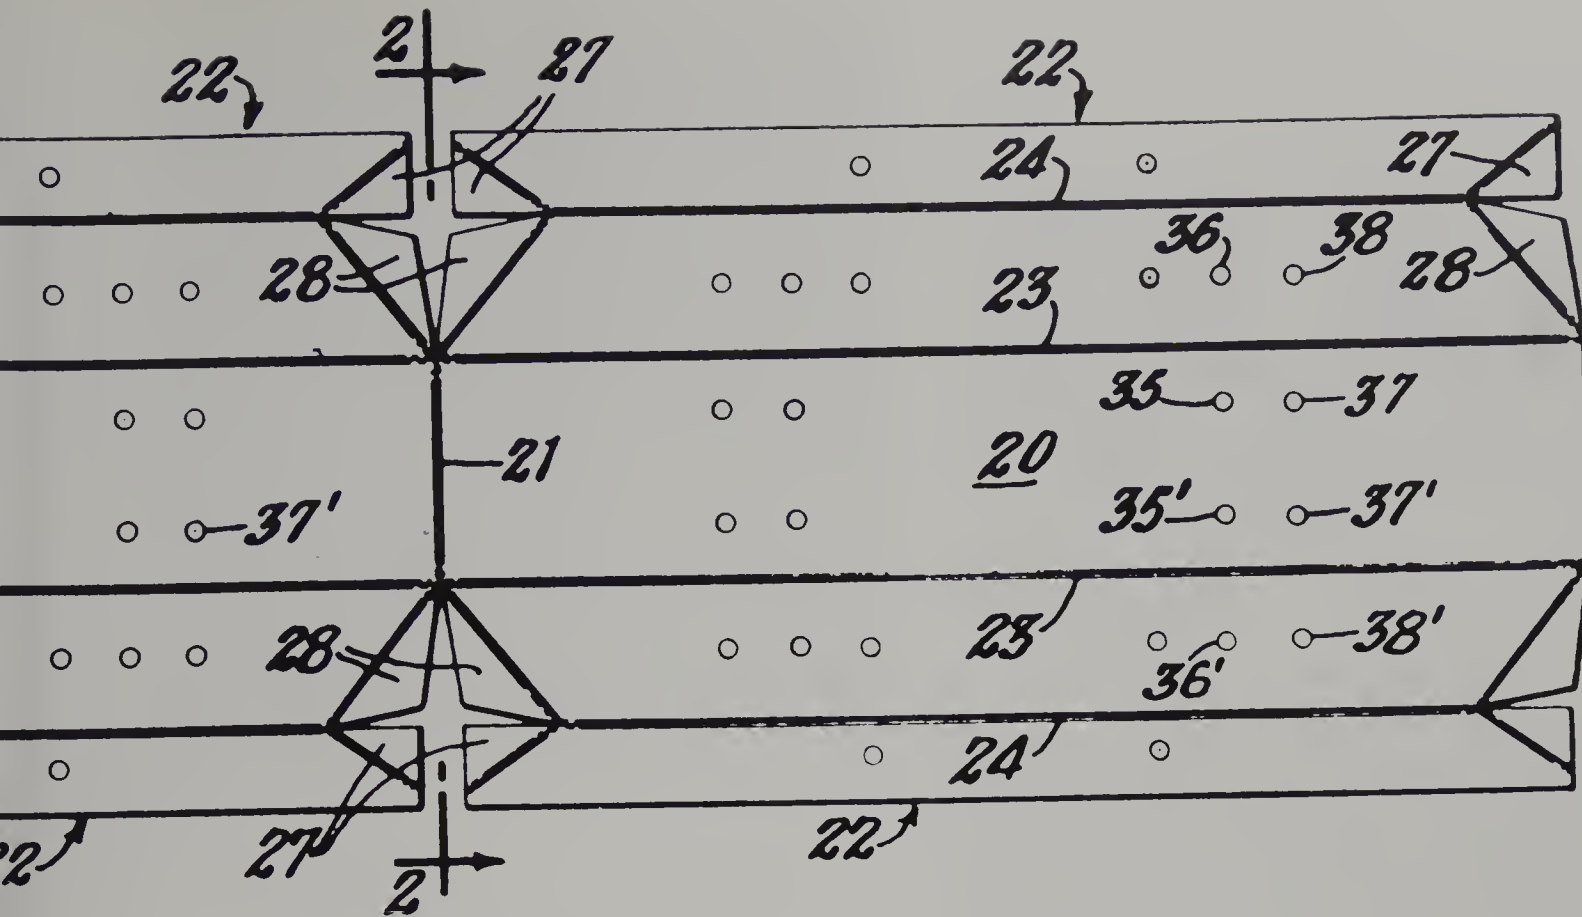 2
27
22
22
24
27
36
38
28
23
28
35
37
21
20
37'
35'
37'
28
23
38'
36'
24
22
27
22
2